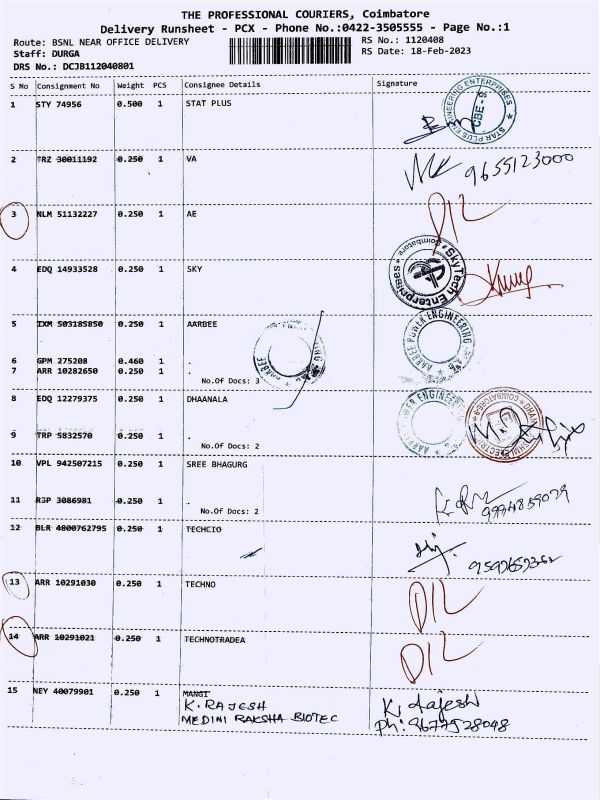 THE PROFESSIONAL COURIERS, Coimbatore
Delivery Runsheet - PCX - Phone No.:0422-3505555 - Page No.:1
Route: BSNL NEAR OFFICE DELIVERY RS No.: 1120408
Staff: DURGA RS Date: 18-Feb-2023
DRS No.: DCJB112040801
S No Consignment No Weight PCS Consignee Details Signature
1 STY 74956 0.500 1 STAT PLUS
STAR PLUS ENGINEERING ENTERPRISES CBE
2 TRZ 30011192 0.250 1 VA
9655123000
3 NLM 51132227 0.250 1 AE
D/L
4 EDQ 14933528 0.250 1 SKY
SkyTech Enterprises Coimbatore
5 IXM 503185850 0.250 1 AARBEE
AARBEE POWER ENGINEERING
6 GPM 275208 0.460 1 .
7 ARR 10282650 0.250 1 .
No.Of Docs: 3
8 EDQ 12279375 0.250 1 DHAANALA
9 TRP 5832570 0.250 1 .
No.Of Docs: 2
10 VPL 942507215 0.250 1 SREE BHAGURG
11 RJP 3086981 0.250 1 .
No.Of Docs: 2
9994859079
12 BLR 4800762795 0.250 1 TECHCIO
13 ARR 10291030 0.250 1 TECHNO
D/L
14 ARR 10291021 0.250 1 TECHNOTRADEA
D/L
15 NEY 40079901 0.250 1 MANGT
K. RAJESH K. Rajesh
MEDINI RAKSHA BIOTEC Ph: 9677528048